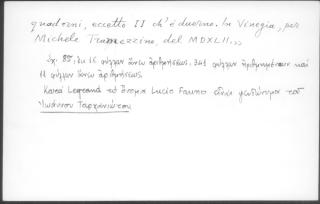 quaderni, eccetto II ch'è duerno. In Vinegia, per
Michele Tramezzino, del MDXLII.,,
σχ. 8º, ἐκ 16 φύλλων ἄνευ ἀριθμήσεως, 341 φύλλων ἠριθμημένων καὶ
11 φύλλων ἄνευ ἀριθμήσεως.
Κατὰ Legrand τὸ ὄνομα Lucio Fauno εἶναι ψευδώνυμον τοῦ
Ἰωάννου Ταρχανιώτου